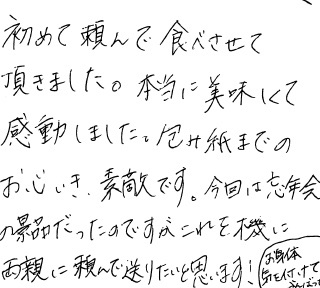 初めて頼んで食べさせて
頂きました。本当に美味しくて
感動しました。包み紙までの
お心いき、素敵です。今回は忘年会
の景品だったのですがこれを機に
両親に頼んで送りたいと思います!
お身体
気を付けて